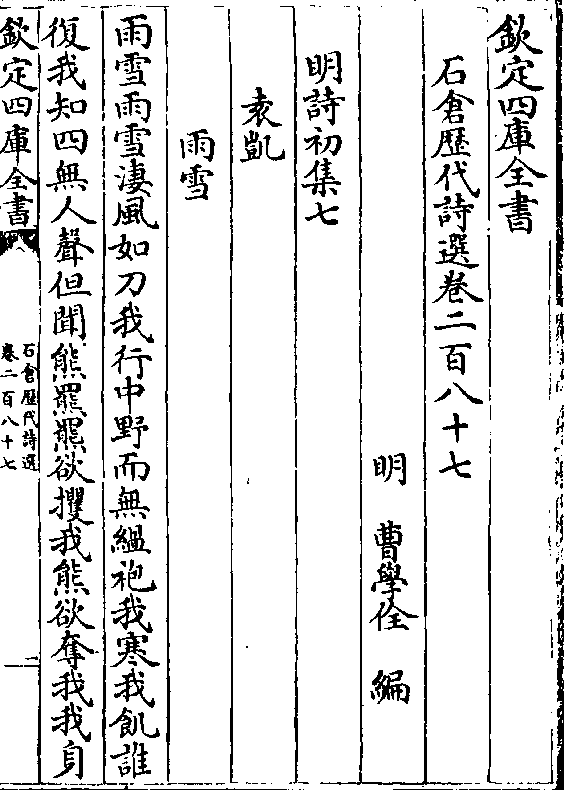 欽定四庫全書
石倉歷代詩選卷二百八十七
明 曹學佺 編
明詩初集七
袁凱
雨雪
雨雪雨雪淒風如刀我行中野而無緼袍我寒我飢誰
復我知四無人聲但聞熊羆羆欲攫我熊欲奪我我身
欽定四庫全書
石倉歷代詩選
卷二百八十七